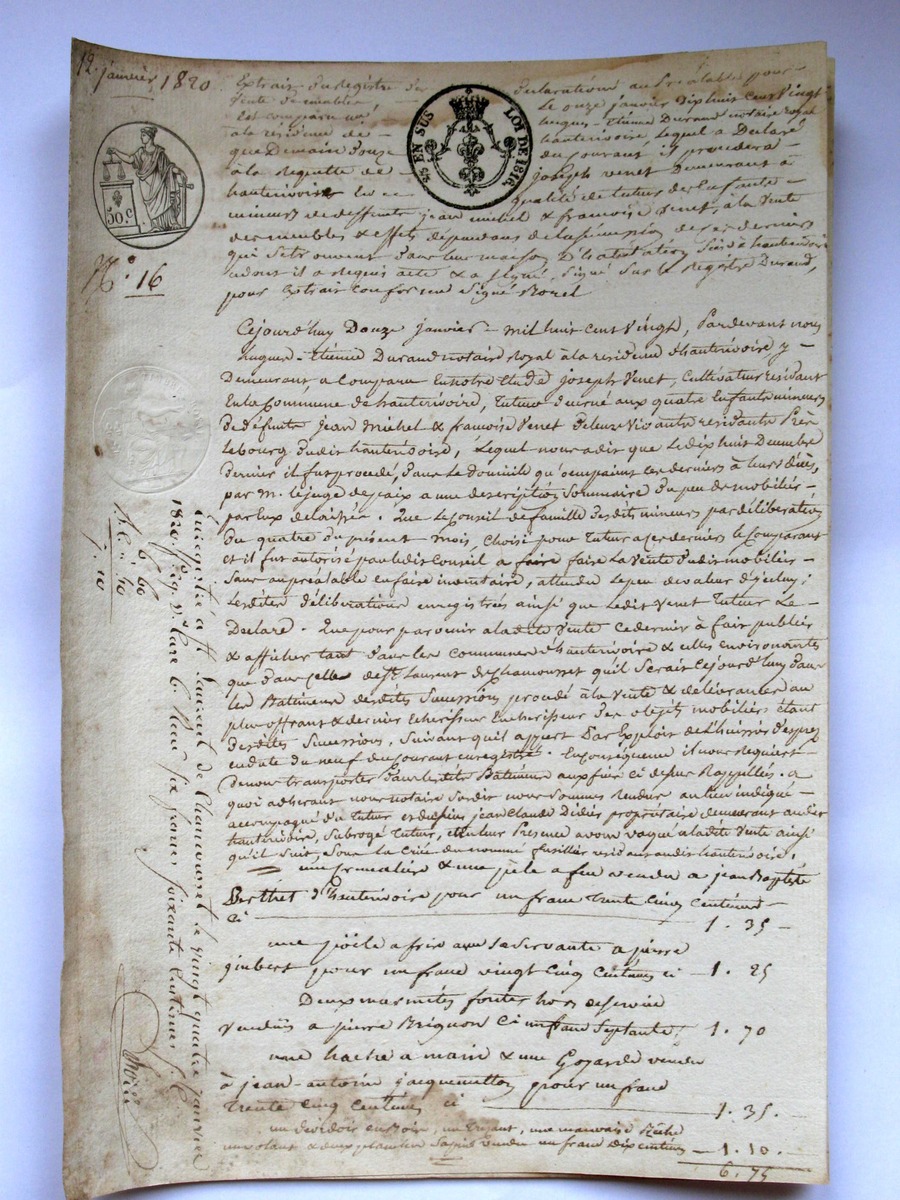 12. janvier 1820
Extrait du registre de déclarations au Préalable pour
Vente de meubles Le onze janvier dix huit cent Vingt
Est comparu me hugues-Etienne Durand notaire royal
à la résidence de hauterivoire Lequel a Déclaré
que Demain Douze du Courant il procèdera
à la requette de joseph venet Demeurant à
hauterivoire en qualité de tuteur des Enfants
mineurs de deffunts jean michel & françoise Venet, à la Vente
des meubles & effets dépendans de la succession de ces derniers
qui se trouvent dans leur maison d'habitation Sise à hauterivoire
dont il a requis acte & a signé. Signé Sur le Registre Durand,
pour Extrait conforme Signé Morel
50.c
25 EN SUS LOI DE 1816.
N.° 16
Cejourd'huy Douze janvier mil huit cent Vingt, Pardevant nous
hugues-Etienne Durand notaire Royal à la résidence d'hauterivoire y
Demeurant a Comparu En notre Etude joseph Venet, Cultivateur résidant
En la Commune de hauterivoire, tuteur décerné aux quatre Enfants mineurs
de défunts jean Michel & francoise Venet de leur Vivant résidants Près
le bourg dudit hauterivoire, Lequel nous a dit que Le dix huit Decembre
dernier il fut procédé, dans Le domicile qu'occupaient ces derniers à leurs décès,
par m. le juge de paix a une description Sommaire du peu de mobilier
par Eux delaissé. Que Le Conseil de famille desdits mineurs par délibération
du quatre du présent mois, choisi pour tuteur a ces derniers le Comparant
et il fut autorisé par ledit Conseil a faire faire La Vente dudit mobilier
Sans au préalable en faire inventaire, attendu Le peu de valeur d'icelui;
Lesdites délibérations enregistrées ainsi que Ledit Venet tuteur Le
Déclare. Que pour parvenir a ladite Vente ce dernier à fait publier
& afficher tant dans les communes d'hauterivoire & celles environnantes
que dans celle de St. Laurent de Chamousset qu'il Serait Cejourd'huy dans
les Batimens desdites Successions procédé à la Vente & délivrance au
plus offrant & dernier Encherisseur des objets mobiliers étant
desdites Successions, Suivant qu'il appert Par Exploit de L'huissier
en date du neuf du Courant enregistré. En conséquence il nous Requiert
de nous transporter dans lesdits Bâtimens aux fins ci dessus Rappellées. a
quoi adhérant nous notaire Susdit nous Sommes Rendus au lieu indiqué
accompagné du Tuteur et du sieur jean Claude Didier propriétaire demeurant audit
hauterivoire, Subrogé Tuteur, et en leur Presence avons vaqué a ladite Vente ainsi
qu'il Suit, Sous la Criée du nommé fusillier résidant audit hauterivoire;
une cremalière & une pèle a feu vendu a jean Baptiste
Berthet d'hauterivoire pour un franc trente Cinq Centimes
ci 1. 35
une poële a frire avec Sa Servante a pierre
gubert pour un franc vingt Cinq Centimes ci 1. 25
Deux marmites fontes hors de Service
Vendües a pierre Brignon Ci un franc Septante 1. 70
une hache a main & une Goyarde vendu
à jean-antoine jacquemetton pour un franc
Trente Cinq Centimes ci 1. 35.
un devidoir en Bois, un une mauvaise
un volant vendu un franc dix centimes 1. 10.
6. 75
Enregistré à St. Laurent de Chamousset le vingt quatre janvier
1820. Reçu six francs soixante centimes
6. 60